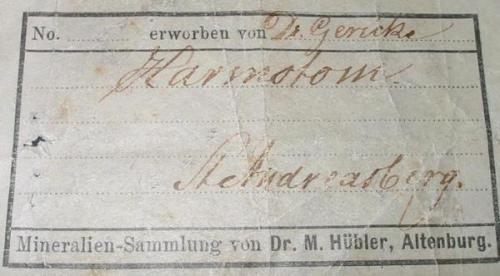 No. ........ erworben von Dr. Gericke
Harmotom
St. Andreasberg.
Mineralien-Sammlung von Dr. M. Hübler, Altenburg.